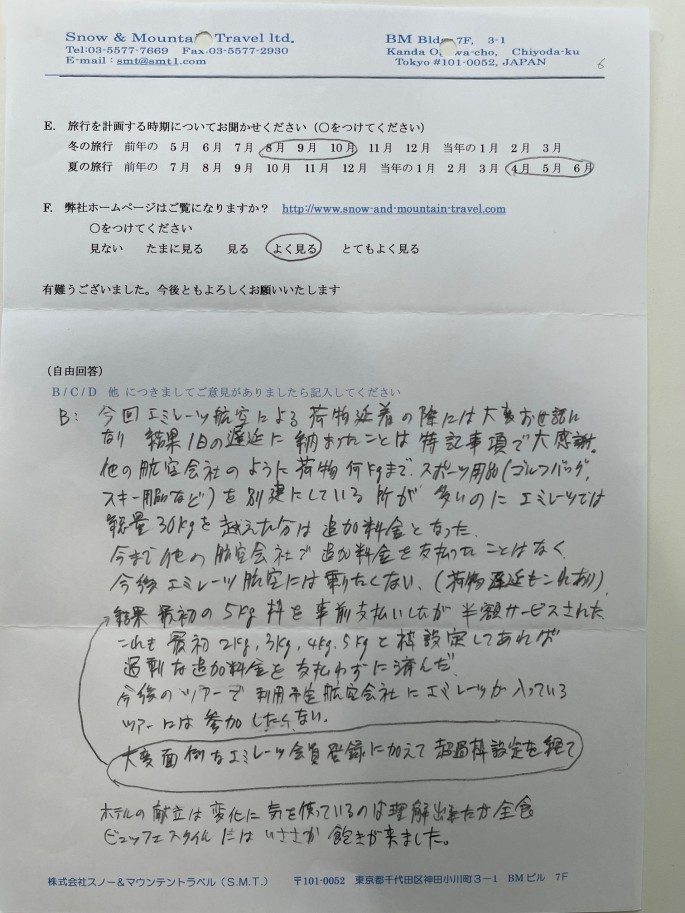 Snow & Mountain Travel ltd.
Tel:03-5577-7669 Fax.03-5577-2930
E-mail : smt@smt1.com
BM Bldg 7F, 3-1
Kanda Ogawa-cho, Chiyoda-ku
Tokyo #101-0052, JAPAN
6
E. 旅行を計画する時期についてお聞かせください（○をつけてください）
冬の旅行 前年の 5月 6月 7月 8月 9月 10月 11月 12月 当年の1月 2月 3月
夏の旅行 前年の 7月 8月 9月 10月 11月 12月 当年の1月 2月 3月 4月 5月 6月
F. 弊社ホームページはご覧になりますか？ http://www.snow-and-mountain-travel.com
○をつけてください
見ない たまに見る 見る よく見る とてもよく見る
有難うございました。今後ともよろしくお願いいたします
（自由回答）
B/C/D 他 につきましてご意見がありましたら記入してください
B: 今回エミレーツ航空による荷物延着の際には大変お世話に
なり 結果1日の遅延に納まったことは特記事項で大感謝。
他の航空会社のように荷物何kgまで、スポーツ用品(ゴルフバッグ、
スキー用品など)を別建にしている所が多いのにエミレーツでは
総量30kgを越えた分は追加料金となった。
今まで他の航空会社で追加料金を支払ったことはなく
今後エミレーツ航空には乗りたくない、(荷物遅延もこれあり)、
結果最初の5kg枠を事前支払いしたが半額サービスされた
これも最初2kg,3kg,4kg,5kgと枠設定してあれば
過剰な追加料金を支払わずに済んだ。
今後のツアーで利用予定航空会社にエミレーツが入っている
ツアーには参加したくない。
大変面倒なエミレーツ会員登録に加えて超過枠設定を経て
ホテルの献立は変化に気を使っているのは理解出来たが全食
ビュッフェスタイルにはいささか飽きが来ました。
株式会社スノー&マウンテントラベル（S.M.T.） 〒101-0052 東京都千代田区神田小川町3−1 BMビル 7F